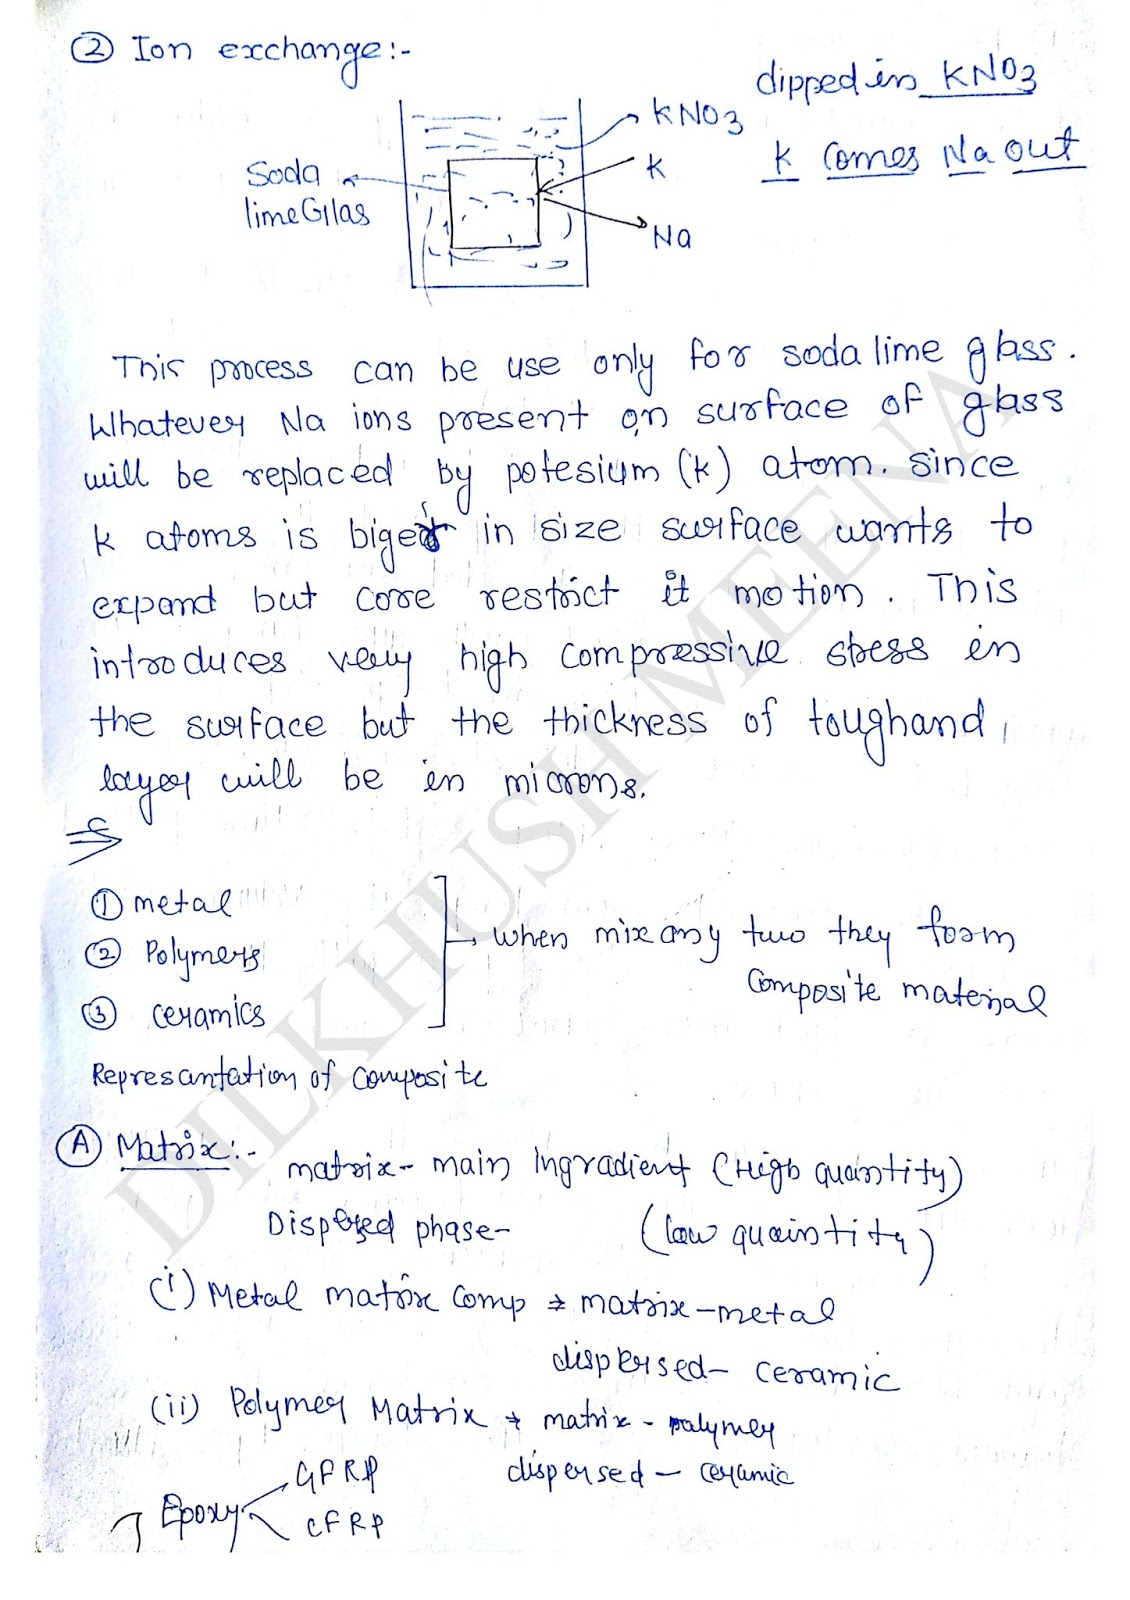 ② Ion exchange:-
dipped in KNO3
K comes Na out
KNO3
K
Na
Soda
lime Gllas
This process can be use only for soda lime glass.
Whatever Na ions present on surface of glass
will be replaced by potesium (K) atom. since
K atoms is biger in size surface wants to
expand but core restrict it motion. This
introduces very high compressive stress in
the surface but the thickness of toughand
layer will be in microns.
⇒
① metal
② Polymers
③ ceramics
→ when mix any two they form
composite material
Represantation of composite
Ⓐ Matrix:-
matrix- main Ingradient (High quantity)
Dispersed phase- (low quaintity)
(i) Metal matrix comp → matrix-metal
dispersed- ceramic
(ii) Polymer Matrix → matrix - polymer
dispersed - ceramic
Epoxy
GFRP
CFRP
DILKHUSH MEENA